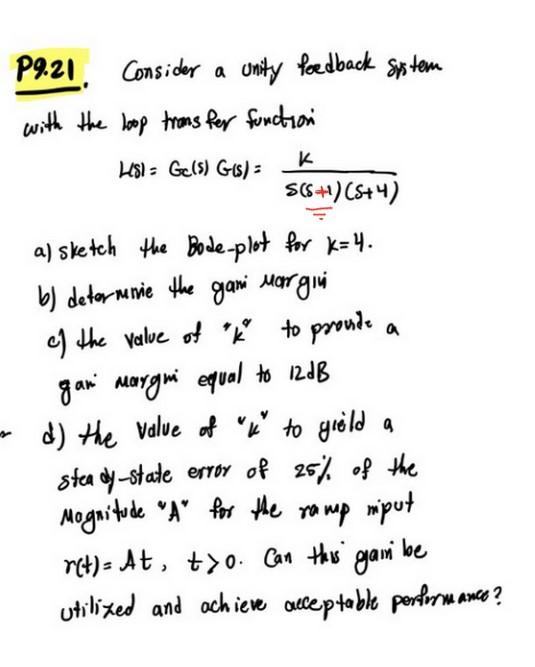 P9.21. Consider a unity feedback system
with the loop transfer function
L(s) = Gc(s) G(s) = K / S(S+1)(S+4)
a) sketch the Bode-plot for K=4.
b) determine the gain margin
c) the value of "K" to provide a
gain margin equal to 12dB
d) the value of "K" to yield a
steady-state error of 25% of the
Magnitude "A" for the ramp input
r(t) = At, t>0. Can this gain be
utilized and achieve acceptable performance?